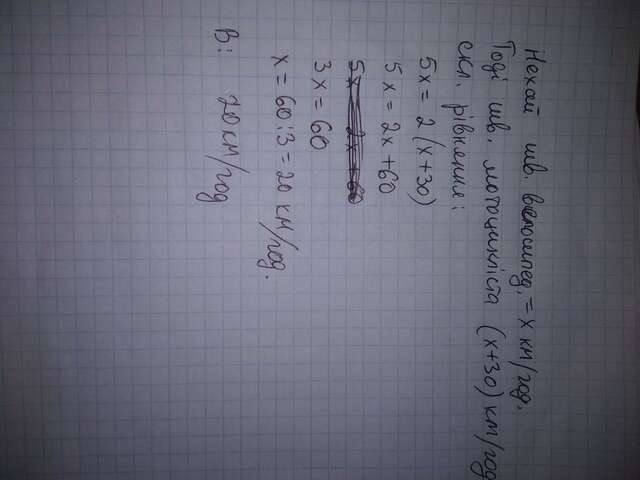 Нехай шв. велосипед. = x км/год.
Тоді шв. мотоцикліста (x+30) км/год
скл. рівняння:
5x = 2 (x+30)
5x = 2x+60
3x = 60
x = 60:3 = 20 км/год.
В: 20 км/год